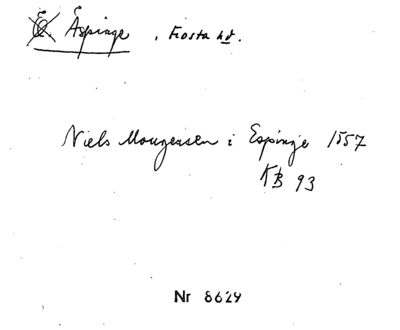 Äspinge, Frosta hd.
Niels Mougensen i Espinge 1557
KB 93
Nr 8629